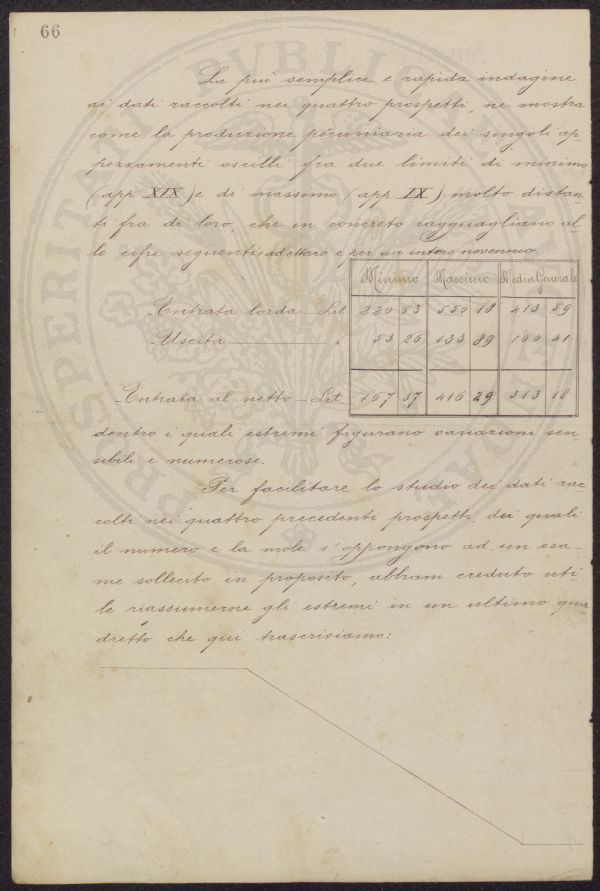 66
La piú semplice e rapida indagine
ai dati raccolti nei quattro prospetti, ne mostra
come la produzione pecuniaria dei singoli ap-
pezzamenti oscilli fra due limiti di minimo
(app. XIX) e di massimo (app. IX) molto distan-
ti fra di loro, che in concreto ragguagliano al
le cifre seguenti: ad ettaro e per un intero novennio.
Minimo Massimo Media Generale
Entrata lorda Lit. 220 63 550 18 413 59
Uscita " 53 26 133 89 100 41
Entrata al netto Lit. 167 37 416 29 313 18
dentro i quali estremi figurano variazioni sen-
sibili e numerose.
Per facilitare lo studio dei dati rac-
colti nei quattro precedenti prospetti, dei quali
il numero e la mole s'oppongono ad un esa-
me sollecito in proposito, abbiam creduto uti
le riassumerne gli estremi in un ultimo qua
dretto che qui trascrisiamo:
PVBLICAE
PROSPERITATI